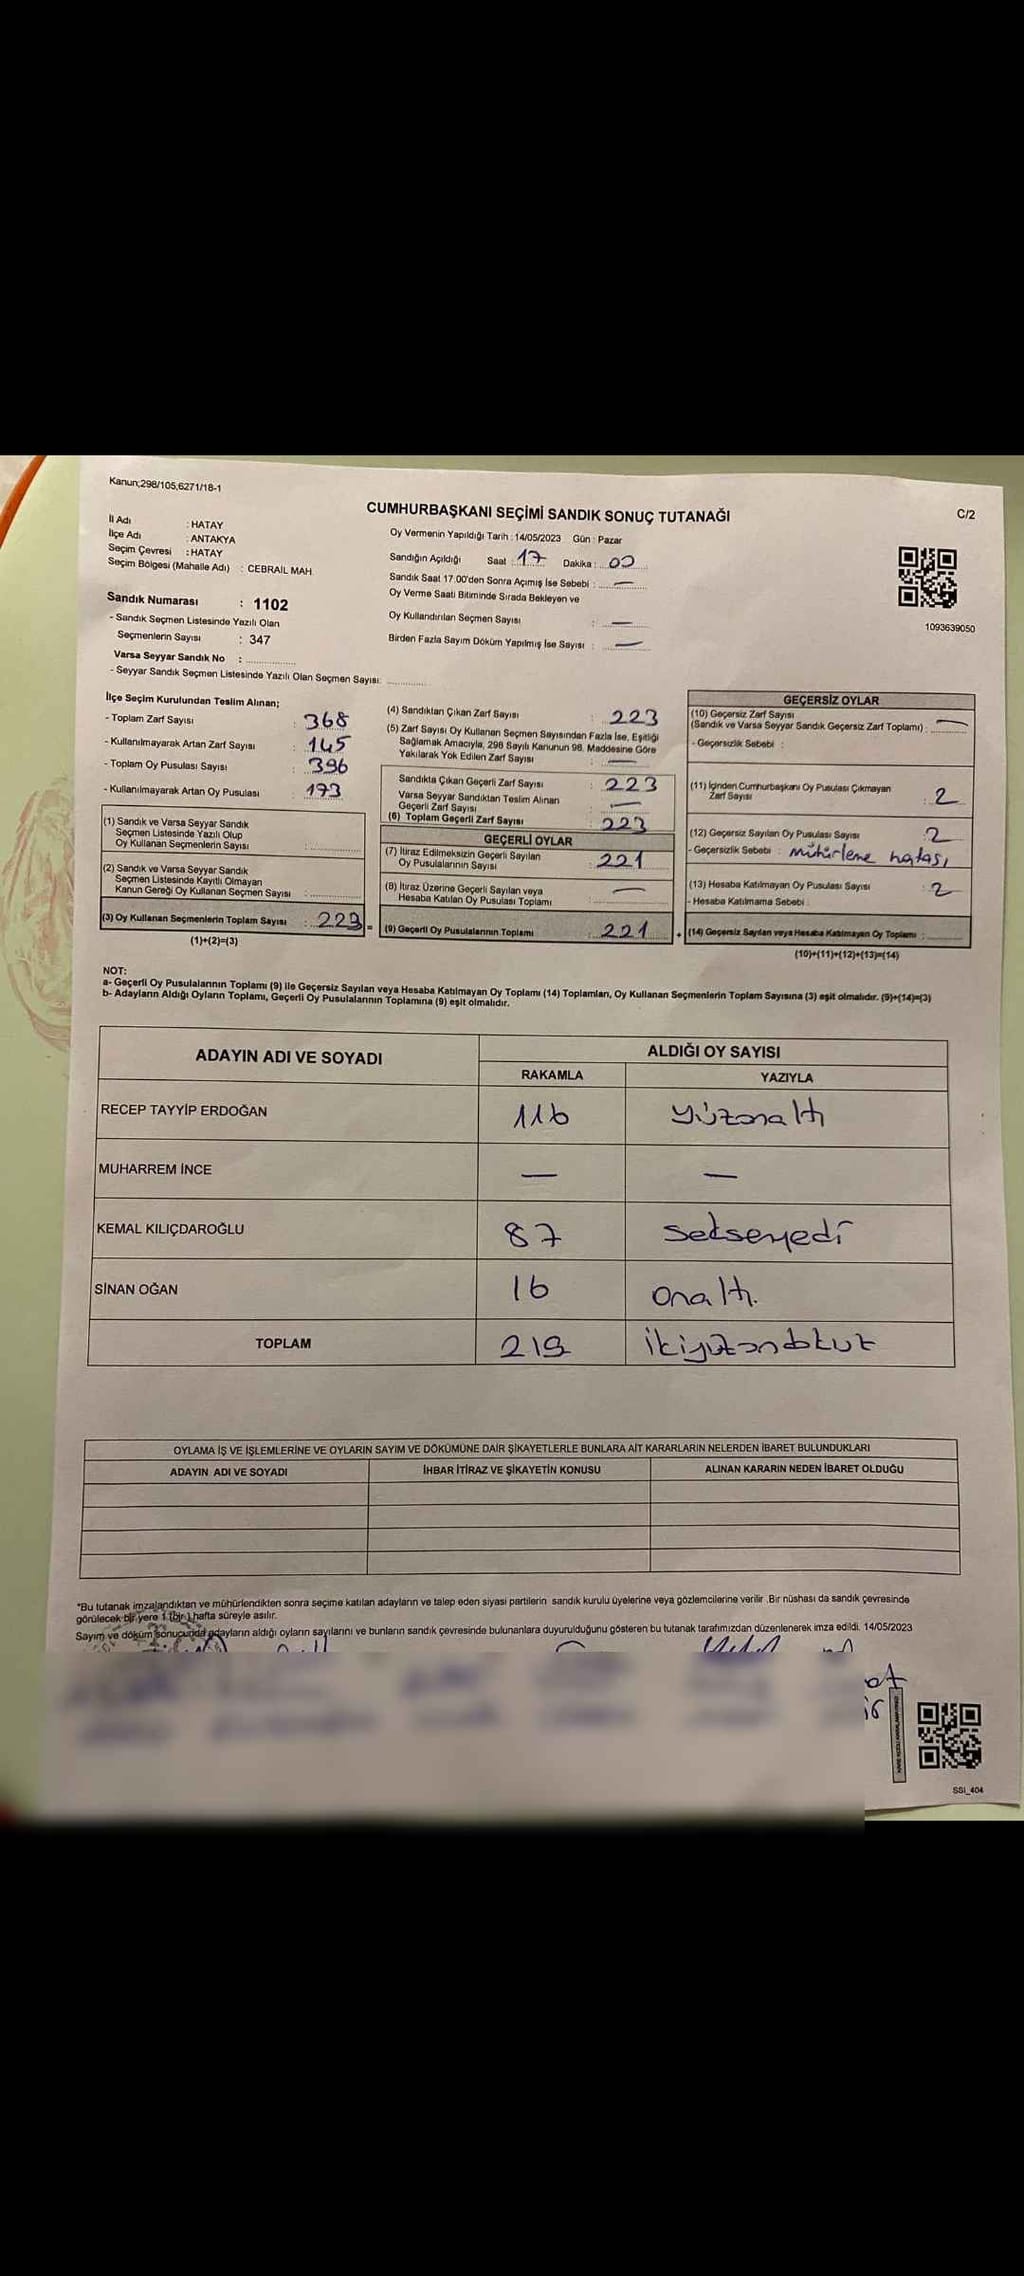 Kanun;298/105,6271/18-1
CUMHURBAŞKANI SEÇİMİ SANDIK SONUÇ TUTANAĞI
C/2
İl Adı : HATAY
İlçe Adı : ANTAKYA
Seçim Çevresi : HATAY
Seçim Bölgesi (Mahalle Adı) : CEBRAİL MAH.
Sandık Numarası : 1102
- Sandık Seçmen Listesinde Yazılı Olan
Seçmenlerin Sayısı : 347
Varsa Seyyar Sandık No :
- Seyyar Sandık Seçmen Listesinde Yazılı Olan Seçmen Sayısı:
Oy Vermenin Yapıldığı Tarih : 14/05/2023 Gün : Pazar
Sandığın Açıldığı Saat : 17 Dakika : 00
Sandık Saat 17.00'den Sonra Açımış İse Sebebi : —
Oy Verme Saati Bitiminde Sırada Bekleyen ve
Oy Kullandırılan Seçmen Sayısı : —
Birden Fazla Sayım Döküm Yapılmış İse Sayısı : —
1093639050
İlçe Seçim Kurulundan Teslim Alınan;
- Toplam Zarf Sayısı : 368
- Kullanılmayarak Artan Zarf Sayısı : 145
- Toplam Oy Pusulası Sayısı : 396
- Kullanılmayarak Artan Oy Pusulası : 173
(1) Sandık ve Varsa Seyyar Sandık
Seçmen Listesinde Yazılı Olup
Oy Kullanan Seçmenlerin Sayısı :
(2) Sandık ve Varsa Seyyar Sandık
Seçmen Listesinde Kayıtlı Olmayan
Kanun Gereği Oy Kullanan Seçmen Sayısı :
(3) Oy Kullanan Seçmenlerin Toplam Sayısı : 223 =
(1)+(2)=(3)
(4) Sandıktan Çıkan Zarf Sayısı : 223
(5) Zarf Sayısı Oy Kullanan Seçmen Sayısından Fazla İse, Eşitliği
Sağlamak Amacıyla, 298 Sayılı Kanunun 98. Maddesine Göre
Yakılarak Yok Edilen Zarf Sayısı : —
Sandıkta Çıkan Geçerli Zarf Sayısı : 223
Varsa Seyyar Sandıktan Teslim Alınan
Geçerli Zarf Sayısı : —
(6) Toplam Geçerli Zarf Sayısı : 223
GEÇERLİ OYLAR
(7) İtiraz Edilmeksizin Geçerli Sayılan
Oy Pusulalarının Sayısı : 221
(8) İtiraz Üzerine Geçerli Sayılan veya
Hesaba Katılan Oy Pusulası Toplamı : —
(9) Geçerli Oy Pusulalarının Toplamı : 221 +
GEÇERSİZ OYLAR
(10) Geçersiz Zarf Sayısı
(Sandık ve Varsa Seyyar Sandık Geçersiz Zarf Toplamı) : —
- Geçersizlik Sebebi :
(11) İçinden Cumhurbaşkanı Oy Pusulası Çıkmayan
Zarf Sayısı : 2
(12) Geçersiz Sayılan Oy Pusulası Sayısı : 2
- Geçersizlik Sebebi : mühürleme hatası
(13) Hesaba Katılmayan Oy Pusulası Sayısı : 2
- Hesaba Katılmama Sebebi :
(14) Geçersiz Sayılan veya Hesaba Katılmayan Oy Toplamı :
(10)+(11)+(12)+(13)=(14)
NOT:
a- Geçerli Oy Pusulalarının Toplamı (9) ile Geçersiz Sayılan veya Hesaba Katılmayan Oy Toplamı (14) Toplamları, Oy Kullanan Seçmenlerin Toplam Sayısına (3) eşit olmalıdır. (9)+(14)=(3)
b- Adayların Aldığı Oyların Toplamı, Geçerli Oy Pusulalarının Toplamına (9) eşit olmalıdır.
ADAYIN ADI VE SOYADI
ALDIĞI OY SAYISI
RAKAMLA YAZIYLA
RECEP TAYYİP ERDOĞAN 116 yüzonaltı
MUHARREM İNCE — —
KEMAL KILIÇDAROĞLU 87 seksenyedi
SİNAN OĞAN 16 onaltı.
TOPLAM 219 ikiyüzondokuz
OYLAMA İŞ VE İŞLEMLERİNE VE OYLARIN SAYIM VE DÖKÜMÜNE DAİR ŞİKAYETLERLE BUNLARA AİT KARARLARIN NELERDEN İBARET BULUNDUKLARI
ADAYIN ADI VE SOYADI İHBAR İTİRAZ VE ŞİKAYETİN KONUSU ALINAN KARARIN NEDEN İBARET OLDUĞU
*Bu tutanak imzalandıktan ve mühürlendikten sonra seçime katılan adayların ve talep eden siyasi partilerin sandık kurulu üyelerine veya gözlemcilerine verilir .Bir nüshası da sandık çevresinde
görülecek bir yere 1 (bir ) hafta süreyle asılır.
Sayım ve döküm sonucunda adayların aldığı oyların sayılarını ve bunların sandık çevresinde bulunanlara duyurulduğunu gösteren bu tutanak tarafımızdan düzenlenerek imza edildi. 14/05/2023
SSI_404